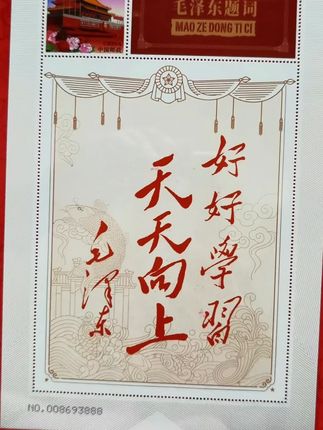 中国邮政
毛泽东题词
MAO ZE DONG TI CI
好好學習
天天向上
毛澤东
NO.008693888